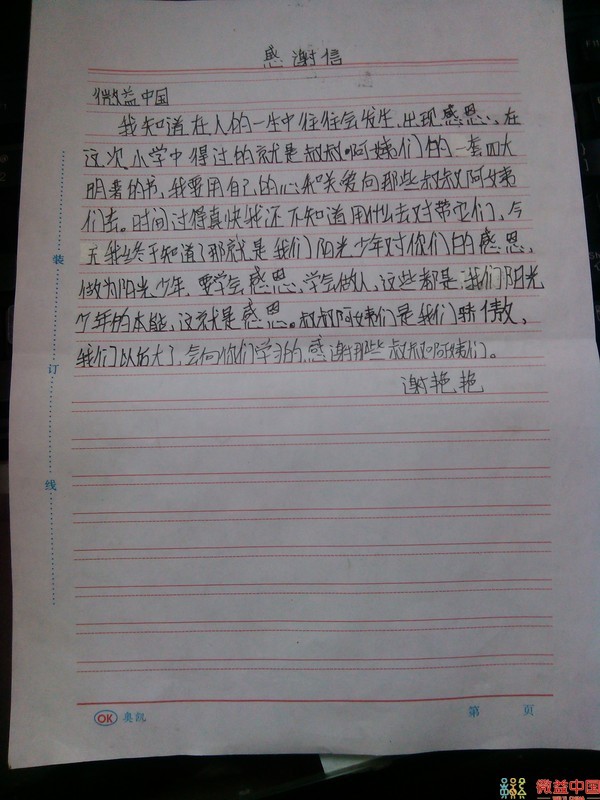 感谢信
微益中国
我知道在人的一生中往往会发生、出现感恩、在
这次小学中得过的就是叔叔啊姨们的一套四大
明著的书,我要用自己的心和关爱向那些叔叔阿姨
们去。时间过得真快我还不知道用什么去对带它们、今
天我终于知道了那就是我们阳光少年对你们的感恩,
做为阳光少年,要学会感恩,学会做人,这些都是我们阳光
少年的本能,这就是感恩。叔叔阿姨们是我们骄傲,
我们以后大了,会向你们学习的,感谢那些叔叔啊姨们。
谢艳艳
装
订
线
OK 奥凯
第 页
微益中国